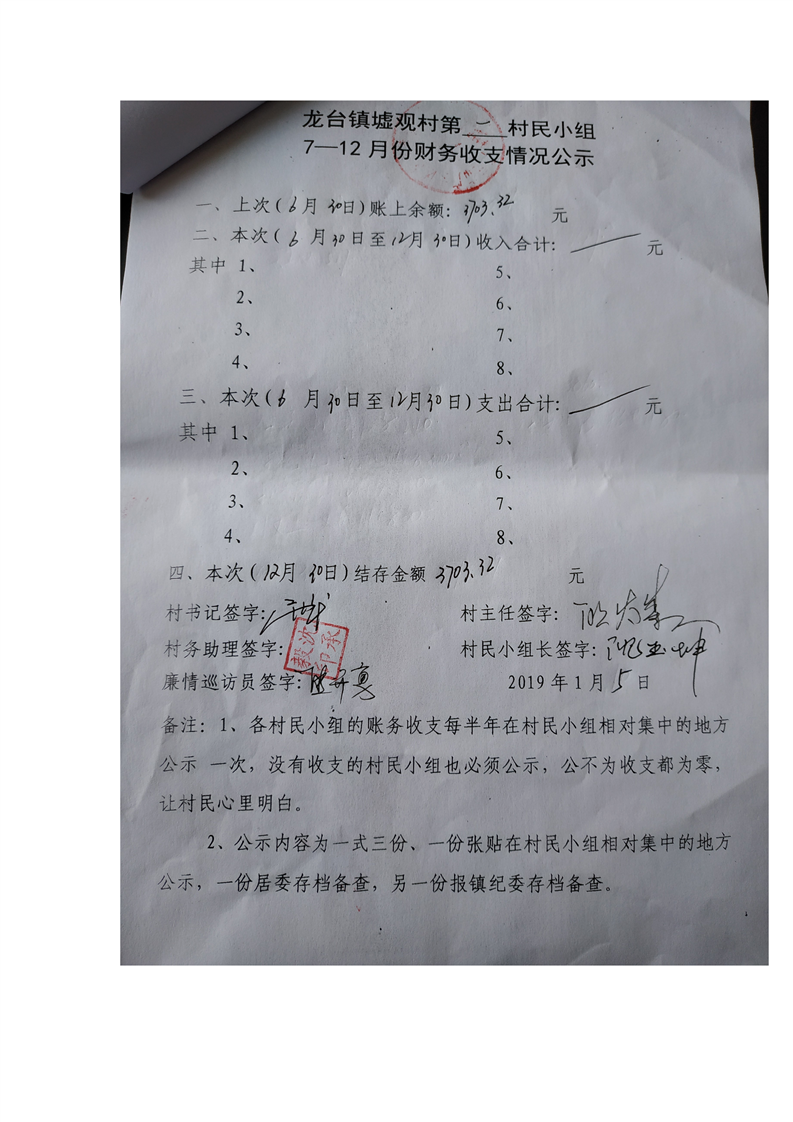 龙台镇墟观村第一村民小组
7—12月份财务收支情况公示
一、上次(6月30日)账上余额：3703.32 元
二、本次(6月30日至12月30日)收入合计： 元
其中 1、 5、
2、 6、
3、 7、
4、 8、
三、本次(6月30日至12月30日)支出合计： 元
其中 1、 5、
2、 6、
3、 7、
4、 8、
四、本次(12月30日)结存金额 3703.32 元
村书记签字： 村主任签字：
村务助理签字： 村民小组长签字：
廉情巡访员签字： 2019年1月5日
备注：1、各村民小组的账务收支每半年在村民小组相对集中的地方
公示 一次，没有收支的村民小组也必须公示，公不为收支都为零，
让村民心里明白。
2、公示内容为一式三份、一份张贴在村民小组相对集中的地方
公示，一份居委存档备查，另一份报镇纪委存档备查。